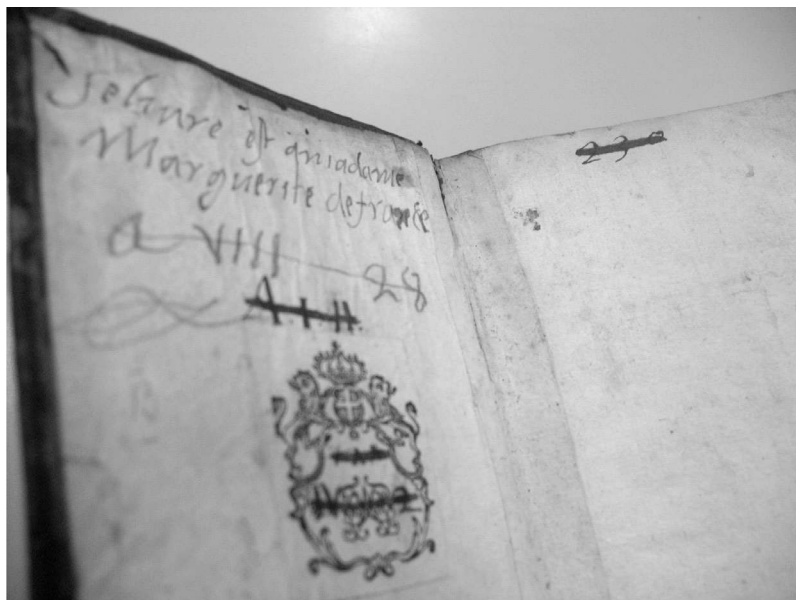 Ce liure est a madame
Marguerite de france
a VIIII 28
A. I. 11
239